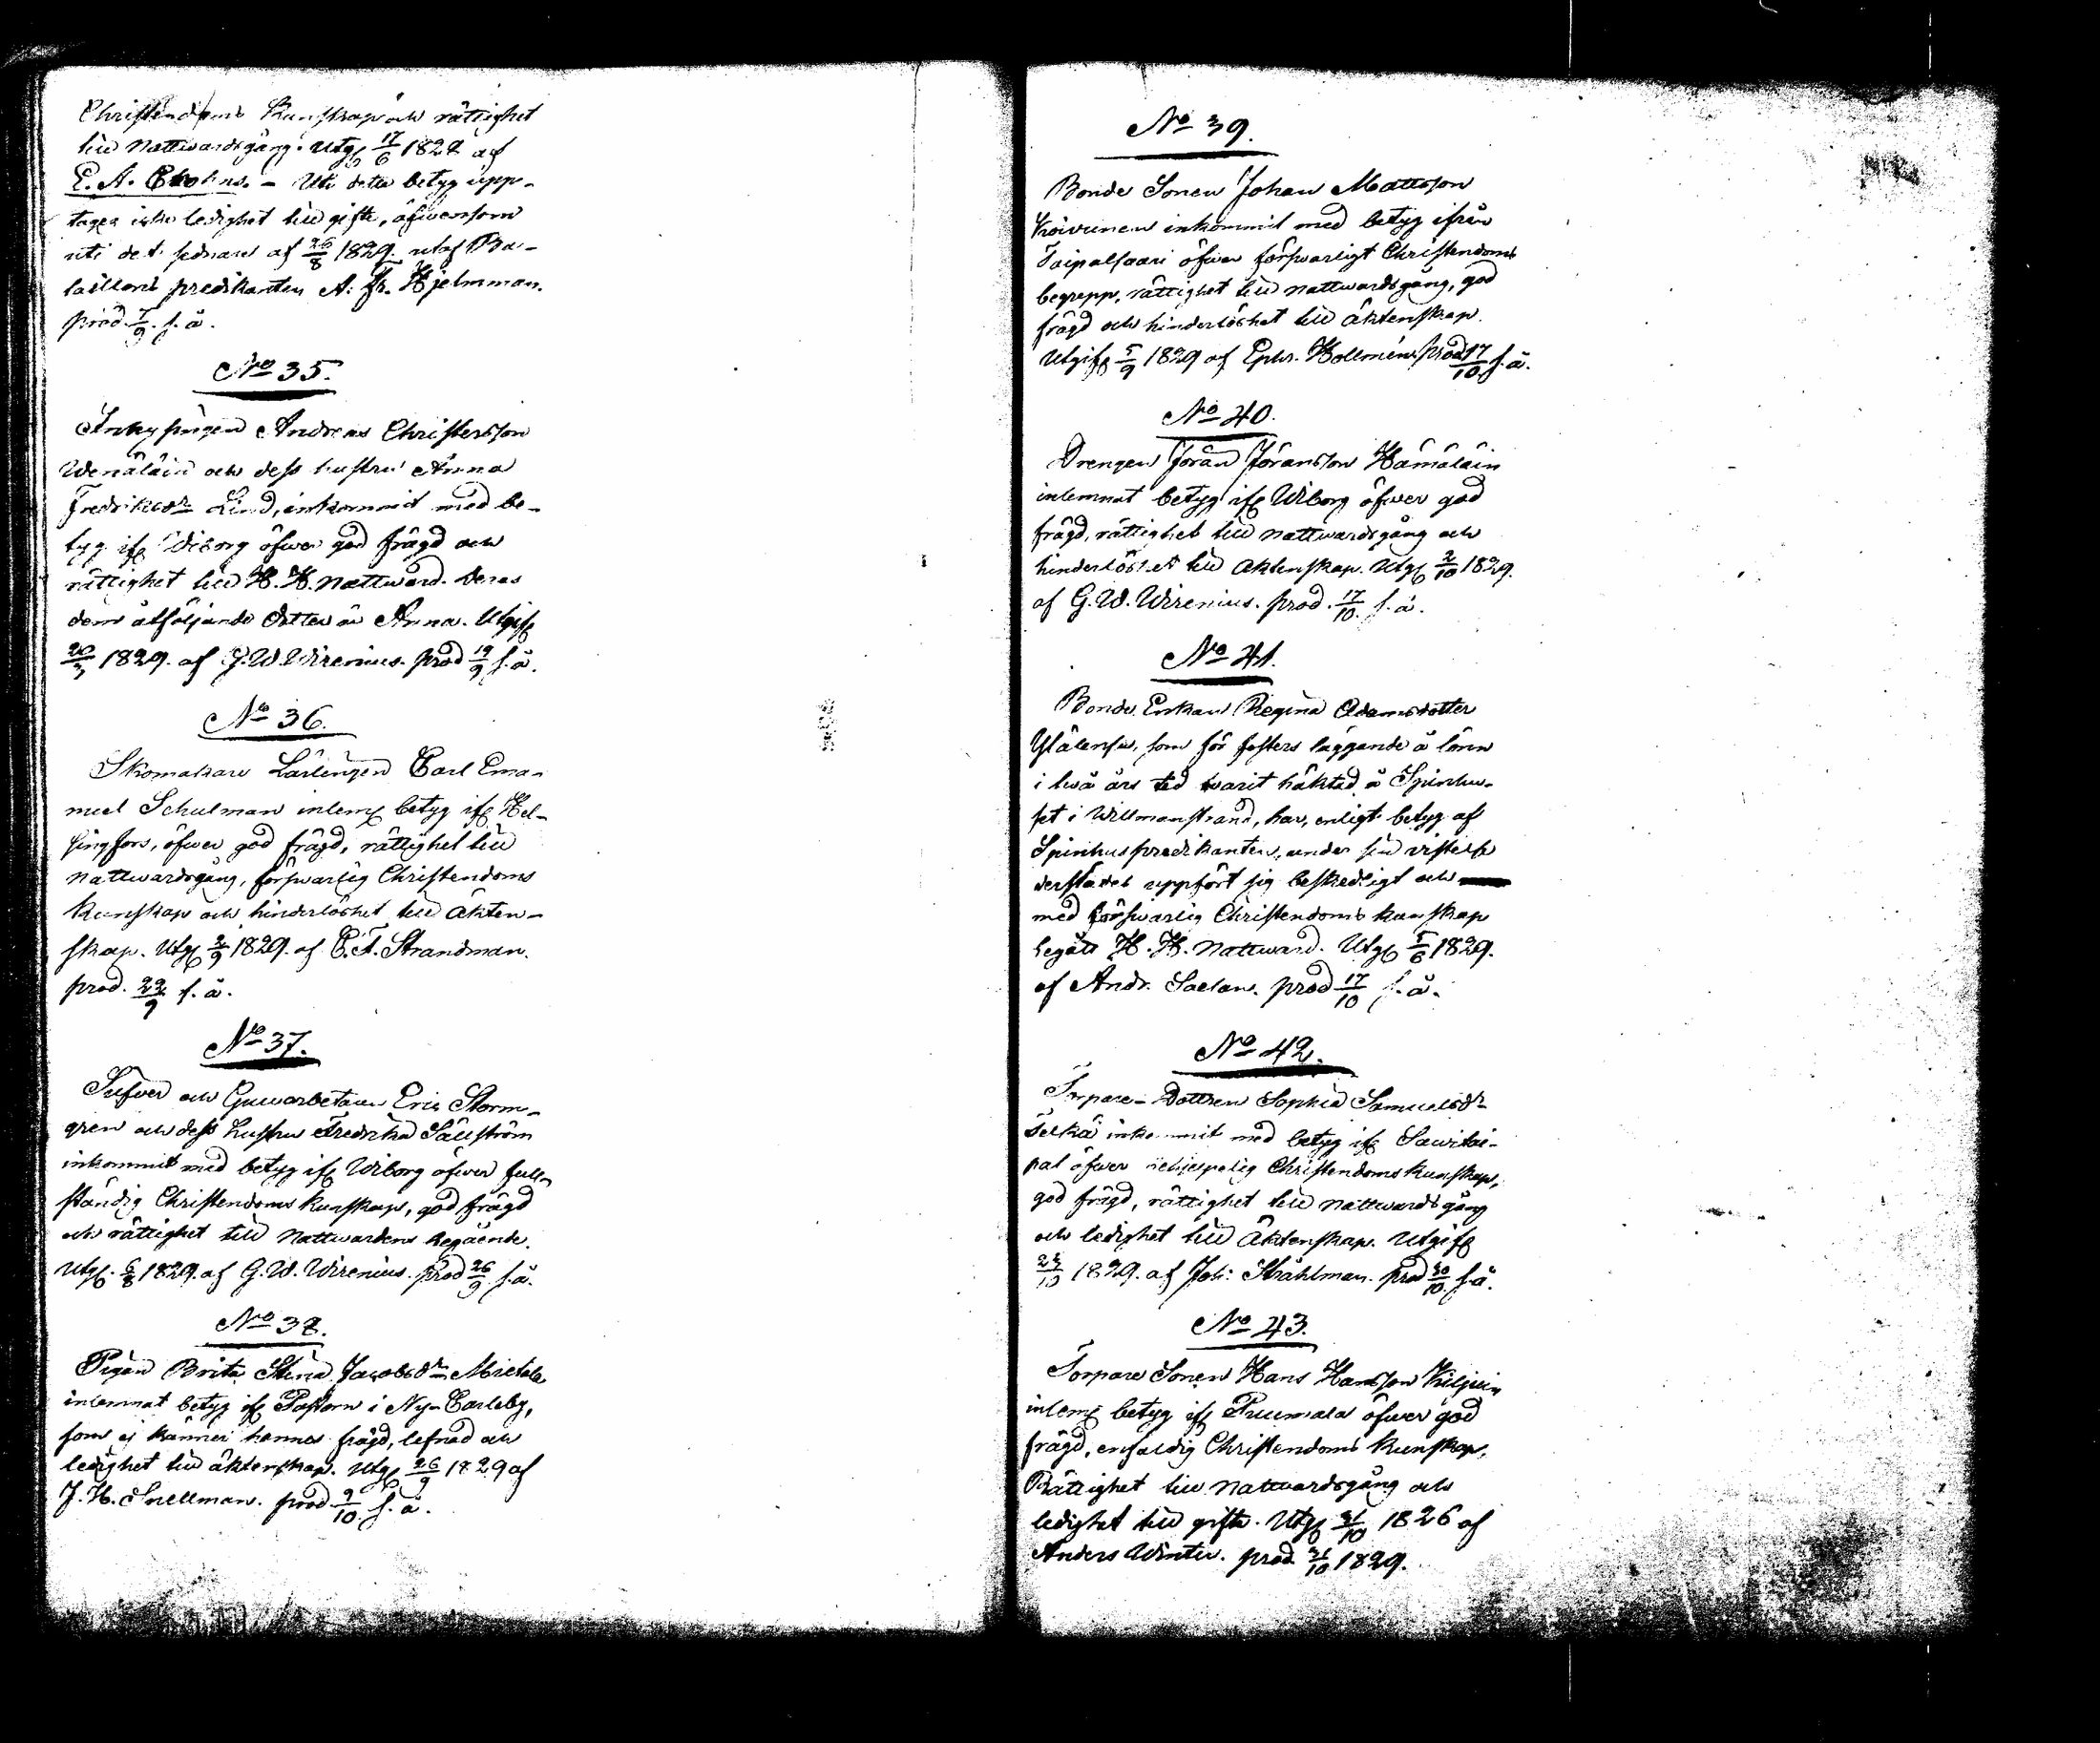 Christendoms Kunskap och rättighet
till nattwardsgång. Utg. 17/6 182 af
E. A. – Uti detta betyg upp-
tages icke ledighet till gifte, äfwensom
uti det sednare af 26/8 1829. utaf Ba-
taillons predikanten A. Fr. Hjelmman.
prod. 7/9. s. å.
No 35.
Inhysingen Andreas Christersson
Wenäläin och dess hustru Anna
Fredriksdr Lind, inkommit med be-
tyg ifr Wiborg öfwer god frägd och
rättighet till H. H. Nattward. Deras
dem åtföljande dotter är Anna. Utgifr
20/3 1829. af G. W. Wirenius. prod 19/9 s. å.
No 36.
Skomakare Lärlingen Carl Ema-
nuel Schulman inlemn. betyg ifr Hel-
singfors, öfwer god frägd, rättighet till
nattwardsgång, förswarlig Christendoms
Kunskap och hinderlöshet till äkten-
skap. Utg. 2/9 1829. af C. T. Strandman.
prod. 22/9 s. å.
No 37.
Silfwer och Gullarbetaren Eric Storm-
gren och dess hustru Fredrika Sällström
inkommit med betyg ifr Wiborg öfwer full-
ständig Christendoms kunskap, god frägd
och rättighet till Nattwardens begående.
Utgf. 6/8 1829. af G. W. Wirenius. prod 26/9 s. å.
No 38.
Pigan Brita Stina Jacobsdr
inlemnat betyg ifr Pastorn i Ny-Carleby,
som ej känner hannes frägd, lefnad och
ledighet till äktenskap. Utg. 26/9 1829 af
J. H. Snellman. prod 9/10. s. å.
No 39.
Bonde Sonen Johan Mattsson
Koivunen inkommit med betyg ifrån
Taipalsaari öfwer förswarligt Christendoms
begrepp, rättighet till nattwardsgång, god
frägd och hinderlöshet till äktenskap.
Utgifr 5/9 1829 af Ephr. Hollmén. prod 17/10 s. å.
No 40.
Drengen Jöran Jöransson Hämäläin
inlemnat betyg ifr Wiborg öfwer god
frägd, rättighet till nattwardsgång och
hinderlöshet till äktenskap. Utg. 2/10 1829.
af G. W. Wirenius. prod. 17/10. s. å.
No 41.
Bonde Enkan Regina Adamsdotter
som för fosters läggande å lönn
i två års tid warit häktad å Spinhu-
set i Willmanstrand, har, enligt betyg af
Spinhuspredikanten, under sin vistelse
derstädes uppfört sig beskedligt och
med förswarlig Christendoms kunskap
begått H. H. Nattward. Utg. 5/6 1829.
af Andr. Saelan. prod 17/10 s. å.
No 42.
Torpare-Dottren Sophia Samuelsdr
Selkä inkommit med betyg ifr Sawitai-
pal öfwer Christendoms kunskap,
god frägd, rättighet till nattwardsgång
och ledighet till äktenskap. Utgifr
/10 1829. af Joh: Stråhlman. prod 30/10. s. å.
No 43.
Torpare Sonen Hans Hansson Kiljuin
inlemn. betyg ifr Puumala öfwer god
frägd, enfaldig Christendoms kunskap,
Rättighet till nattwardsgång och
ledighet till gifte. Utg. 21/10 1826 af
Anders Winter. prod. 31/10 1829.